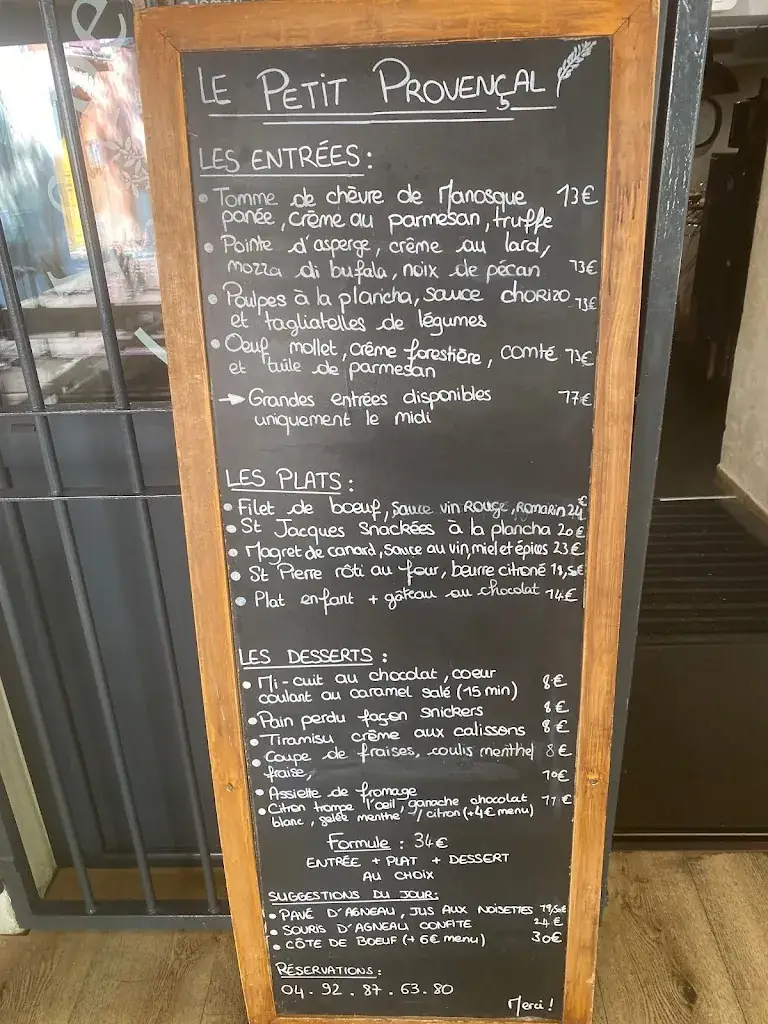 LE PETIT PROVENÇAL
LES ENTRÉES :
• Tomme de chèvre de Manosque 13€
panée, crème au parmesan, truffe
• Pointe d'asperge, crème au lard,
mozza di bufala, noix de pécan 13€
• Poulpes à la plancha, sauce chorizo 13€
et tagliatelles de légumes
• Oeuf mollet, crème forestière, comté 13€
et tuile de parmesan
→ Grandes entrées disponibles 17€
uniquement le midi
LES PLATS :
• Filet de boeuf, sauce vin rouge, romarin 24€
• St Jacques snackées à la plancha 20€
• Magret de canard, sauce au vin, miel et épices 23€
• St Pierre rôti au four, beurre citroné 19,50€
• Plat enfant + gâteau au chocolat 14€
LES DESSERTS :
• Mi-cuit au chocolat, coeur
coulant au caramel salé (15 min) 8€
• Pain perdu façon snickers 8€
• Tiramisu crème aux calissons 8€
• Coupe de fraises, coulis menthe/ 8€
fraise,
• Assiette de fromage 10€
• Citron trompe l'oeil, ganache chocolat 11€
blanc, gelée menthe / citron (+4€ menu)
Formule : 34€
ENTRÉE + PLAT + DESSERT
AU CHOIX
SUGGESTIONS DU JOUR :
• PAVÉ D'AGNEAU, JUS AUX NOISETTES 19,50€
• SOURIS D'AGNEAU CONFITE 24€
• CÔTE DE BOEUF (+ 6€ menu) 30€
RÉSERVATIONS :
04.92.87.63.80
Merci !